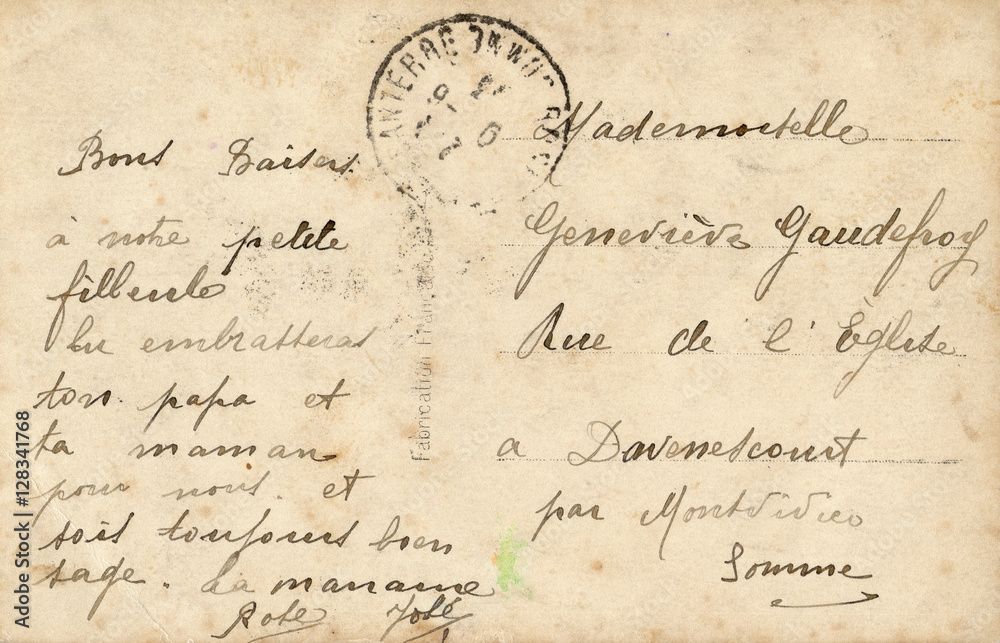 Bons Baisers
à notre petite
filleule
tu embrasseras
ton papa et
ta maman
pour nous. et
sois toujours bien
sage. La marraine
Rose José
Mademoiselle
Geneviève Gaudefroy
Rue de l'Église
a Davenescourt
par Montdidier
Somme
Fabrication Française
Adobe Stock | #128341768